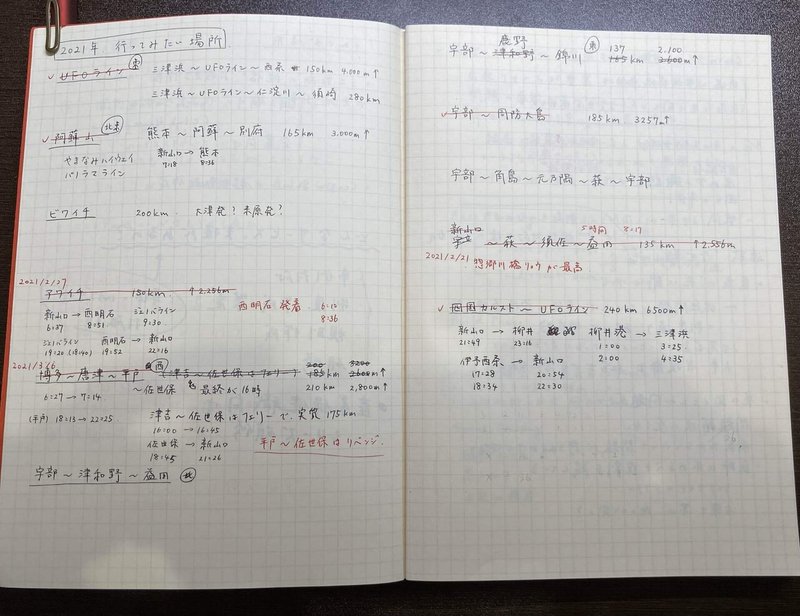 2021年 行ってみたい場所
✓ UFOライン 東 三津浜～UFOライン～西条 150km 4.000m↑
三津浜～UFOライン～仁淀川～須崎 280km
✓ 阿蘇山 北東 熊本～阿蘇～別府 165km 3.000m↑
やまなみハイウェイ 新山口→熊本
パノラマライン 7:18 8:36
ビワイチ 200km. 大津発？米原発？
2021/2/27
アワイチ 150km. ↑2.256m
新山口→西明石 ジェノバライン 西明石発着 6:12
6:37 8:51 9:30 8:36
ジェノバライン 西明石→新山口
19:20(18:40) 19:52 22:16
2021/3/6
博多～唐津～平戸 西 (津吉～佐世保はフェリー) 200 185km 3200 2600m↑
6:27→7:14 ～佐世保 最終が16時 210km 2,800m↑
(平戸) 18:13→22:25 津吉～佐世保はフェリーで、実質175km
16:00→16:45
佐世保→新山口 平戸～佐世保はリベンジ.
18:45 21:26
宇部～津和野～益田 北
鹿野
宇部～津和野～錦川 東 137 2.100
165km 2.600m↑
✓ 宇部～周防大島 185km 3257m↑
宇部～角島～元乃隅～萩～宇部
新山口 5時間 8:17
宇部～萩～須佐～益田 135km ↑2.556m
2021/2/21 惣郷川橋りょうが最高.
✓ 四国カルスト～UFOライン 240km 6500m↑
新山口→柳井 柳井港→三津浜
21:49 23:16 1:00 3:25
伊予西条→新山口 2:00 4:35
17:28 20:54
18:34 22:30